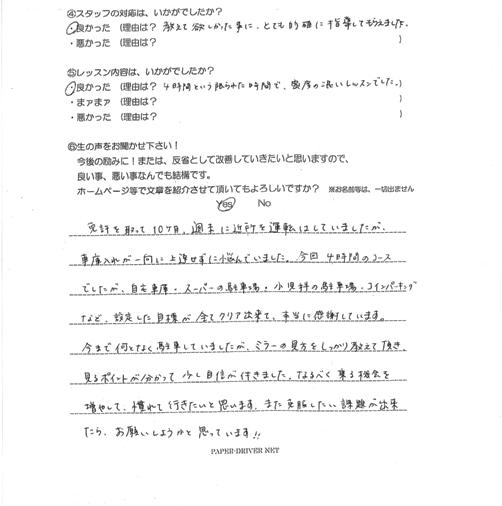 ④スタッフの対応は、いかがでしたか？
・良かった （理由は？ 教えて欲しかった事に、とても的確に指導してもらえました。
・悪かった （理由は？ ）
⑤レッスン内容は、いかがでしたか？
・良かった （理由は？ 4時間という限られた時間で、密度の濃いレッスンでした。）
・まぁまぁ （理由は？ ）
・悪かった （理由は？ ）
⑥生の声をお聞かせ下さい！
今後の励みに！または、反省として改善していきたいと思いますので、
良い事、悪い事なんでも結構です。
ホームページ等で文章を紹介させて頂いてもよろしいですか？ ※お名前等は、一切出ません
Yes No
免許を取って10ヶ月、週末に近所を運転はしていましたが、
車庫入れが一向に上達せずに悩んでいました。今回4時間のコース
でしたが、自宅車庫・スーパーの駐車場・小児科の駐車場・コインパーキング
など、設定した目標が全てクリア出来て、本当に感謝しています。
今まで何となく駐車していましたが、ミラーの見方をしっかり教えて頂き、
見るポイントが分かって少し自信が付きました。なるべく乗る機会を
増やして、慣れて行きたいと思います。また克服したい課題が出来
たら、お願いしようかと思っています!!
PAPER-DRIVER NET